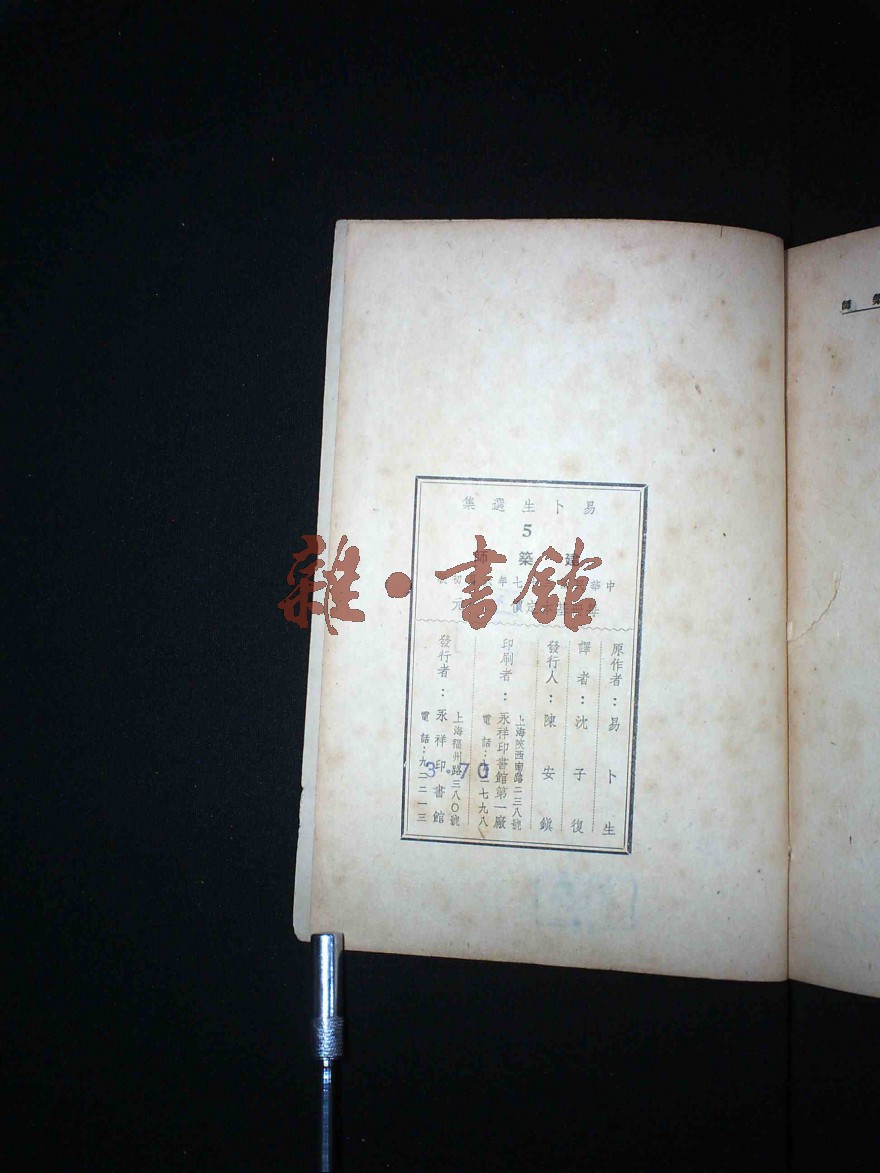 易卜生選集
5
建築師
中華 七年 初
元
原作者：易卜生
譯者：沈子復
發行人：陳安鎮
印刷者：永祥印書館第一廠
上海陝西南路二三八號
電話：七九八
發行者：永祥印書館
上海福州路三八〇號
電話：九二二一三
3.70
雜·書館
築師